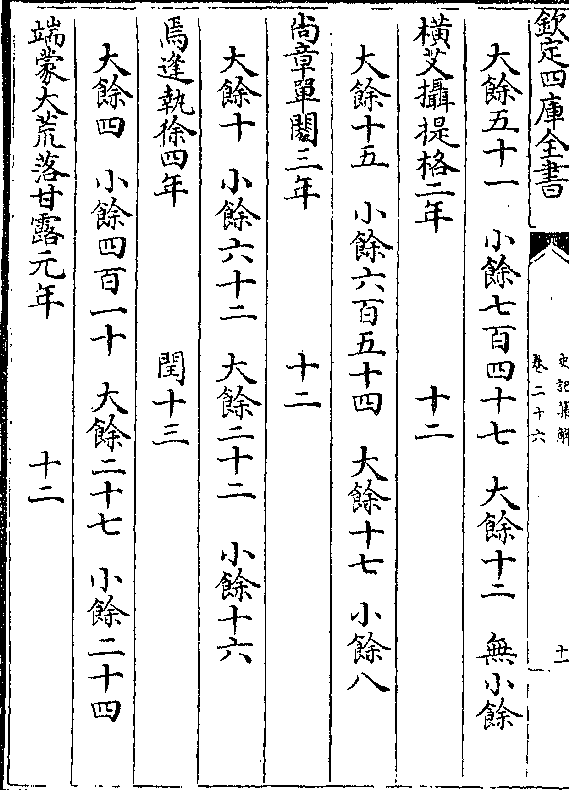 欽定四庫全書
史記集解
卷二十六
十一
大餘五十一 小餘七百四十七 大餘十二 無小餘
橫艾攝提格二年 十二
大餘十五 小餘六百五十四 大餘十七 小餘八
尚章單閼三年 十二
大餘十 小餘六十二 大餘二十二 小餘十六
焉逢執徐四年 閏十三
大餘四 小餘四百一十 大餘二十七 小餘二十四
端蒙大荒落甘露元年 十二